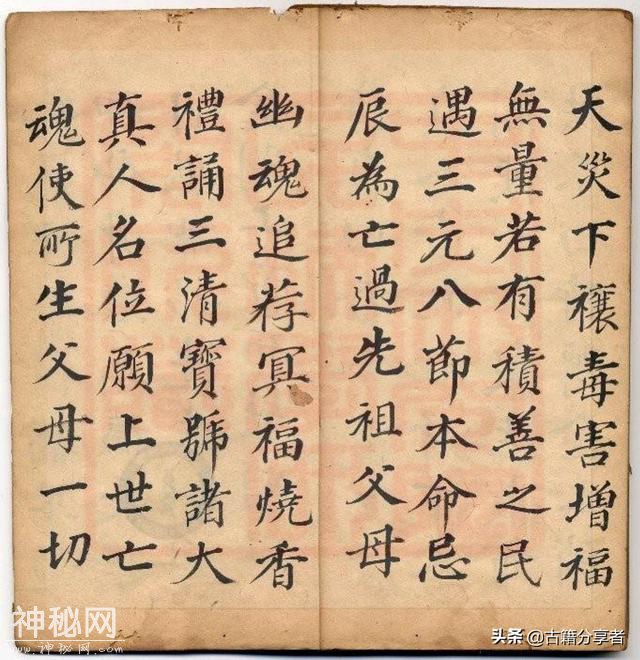 天災下禳毒害增福
無量若有積善之民
遇三元八節本命忌
辰為亡過先祖父母
幽魂追荐冥福燒香
禮誦三清寶號諸大
真人名位願上世亡
魂使所生父母一切
神秘网
www.神秘网.com
头条 @古籍分享者